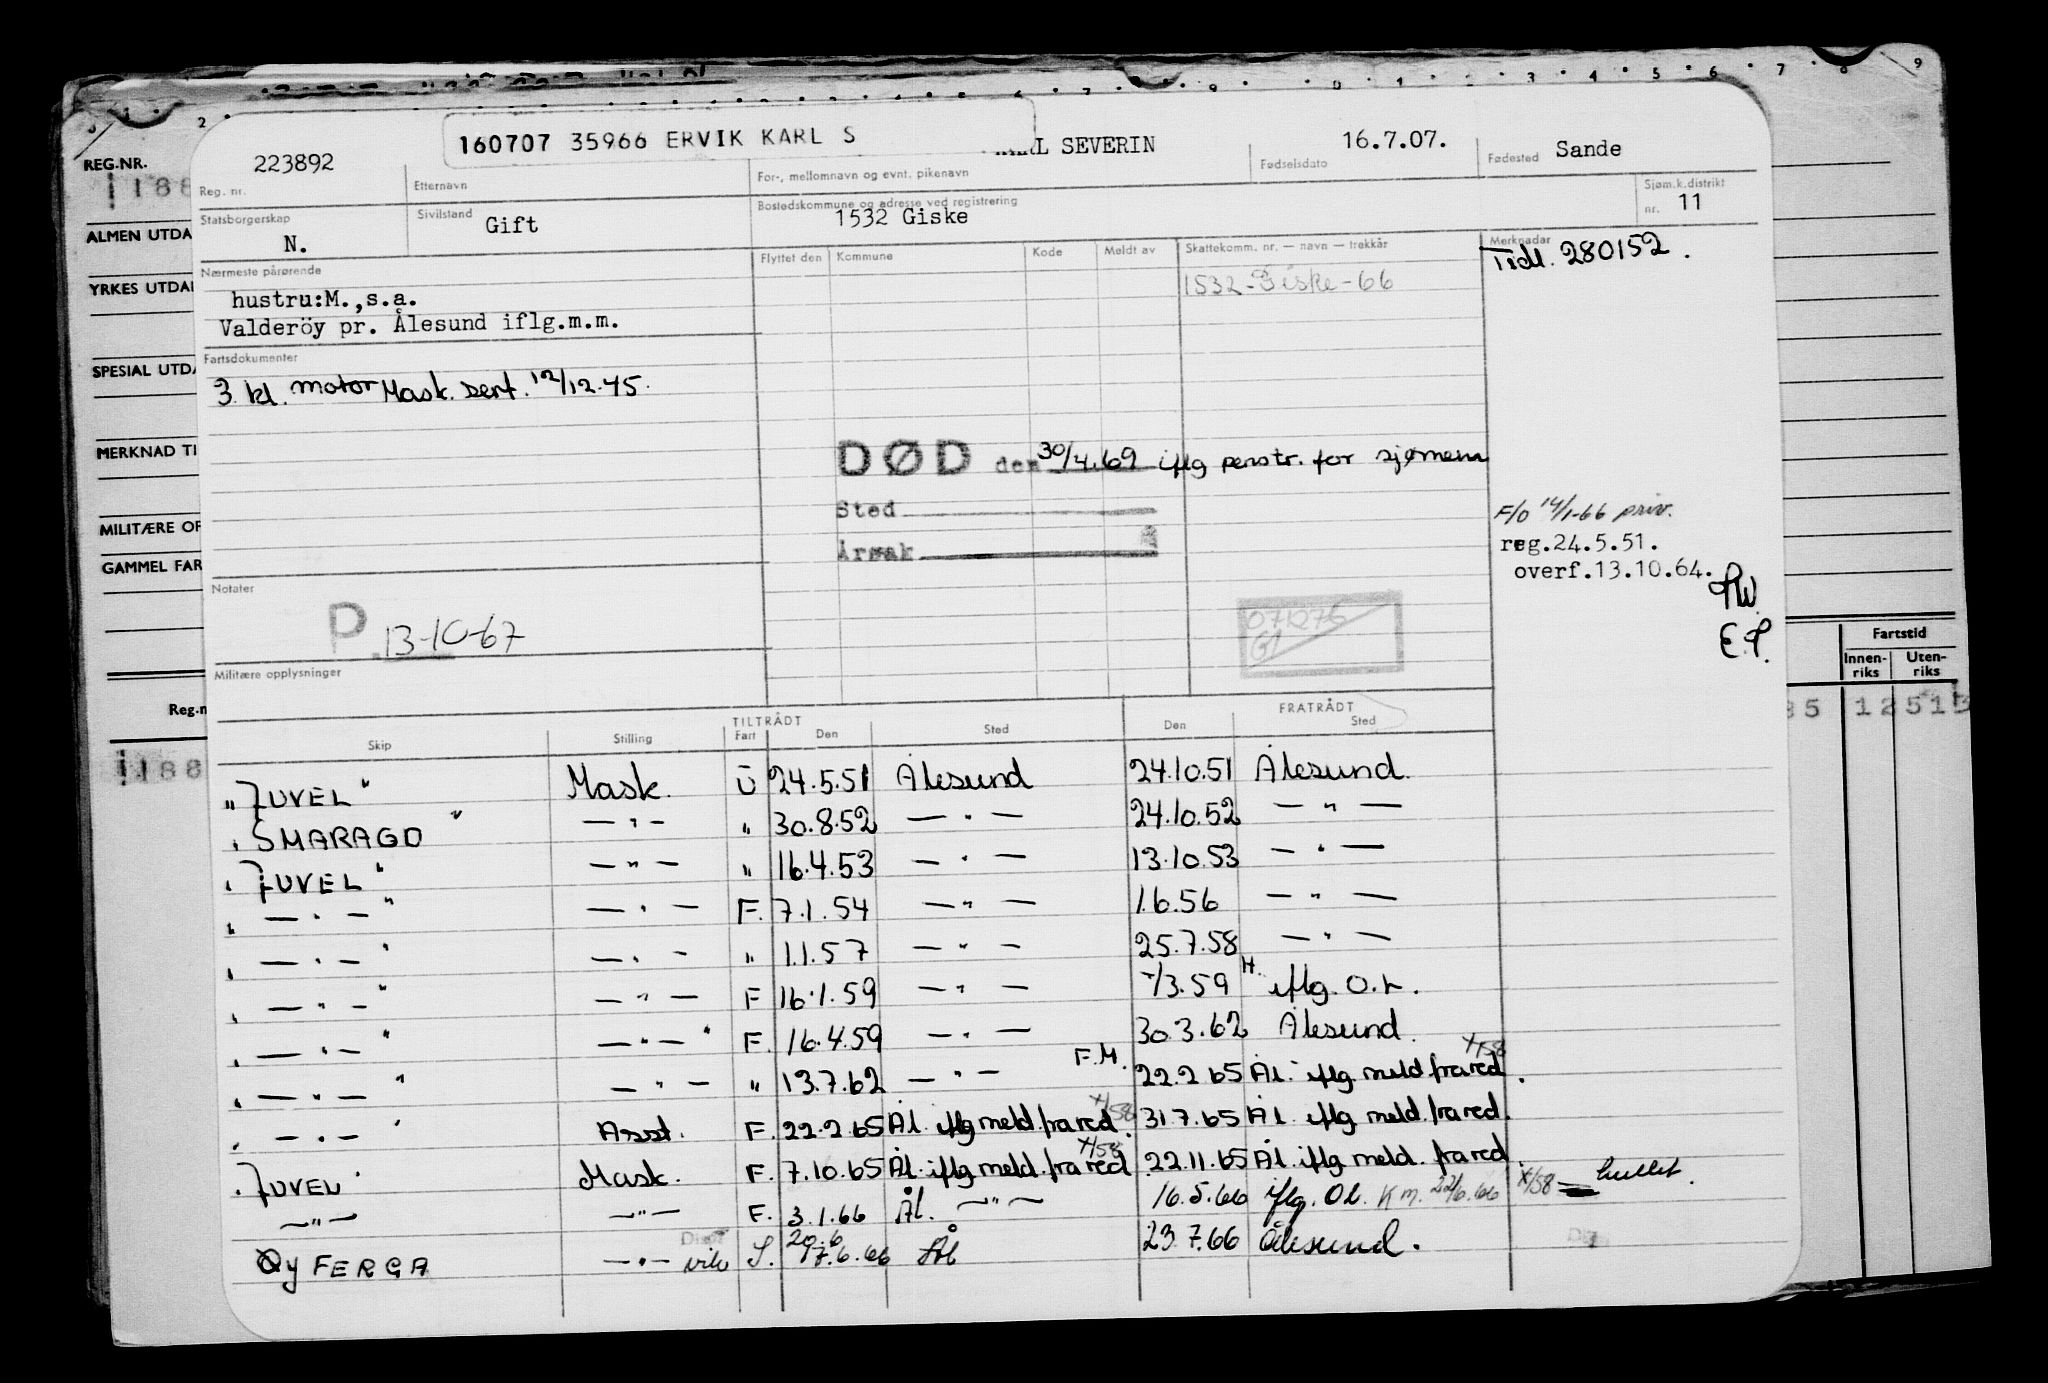 160707 35966 ERVIK KARL S
223892 KARL SEVERIN 16.7.07. Sande
REG.NR. Reg. nr. Etternavn For-, mellomnavn og evnt. pikenavn Fødselsdato Fødested
188
Statsborgerskap Sivilstand Bostedskommune og adresse ved registrering Sjøm.k.distrikt
N. Gift 1532 Giske nr. 11
ALMEN UTDA
Nærmeste pårørende Flyttet den Kommune Kode Meldt av Skattekomm. nr. — navn — trekkår Merknadar
Tidl. 280152.
YRKES UTDA
1532-Giske-66
hustru:M.,s.a.
Valderöy pr. Ålesund iflg.m.m.
SPESIAL UTDA
Fartsdokumenter
3. kl. motor Mask. sert. 12/12.45.
MERKNAD TI
DØD den 30/4.69 iflg penstr. for sjømenn
Sted
Årsak
F/O 14/1-66 priv.
reg.24.5.51.
overf.13.10.64.
MILITÆRE OF
GAMMEL FAR
Notater
P. 13-10-67
071275
E.P.
Militære opplysninger
Fartstid
Innen-riks Uten-riks
Reg.n
85 12513
188
TILTRÅDT FRATRÅDT
Skip Stilling Fart Den Sted Den Sted
"JUVEL" Mask. U 24.5.51 Ålesund 24.10.51 Ålesund.
"SMARAGD" — " — " 30.8.52 — " — 24.10.52 — " —
"JUVEL" — " — " 16.4.53 — " — 13.10.53 — " —
" — " — " — " — F. 7.1.54 — " — 1.6.56 — " —
" — " — " — " — " 1.1.57 — " — 25.7.58 — " —
" — " — " — " — F 16.1.59 — " — /3.59 M. iflg. O.L.
" — " — " — " — " F. 16.4.59 — " — 30.3.62 Ålesund.
" — " — " — " — " 13.7.62 — " — F.M. 22.2.65 Ål. iflg. meld. fra red. x/58
" — " — " Asst. F. 22.2.65 Ål. iflg meld. fra red. x/58 31.7.65 Ål. iflg meld. fra red.
"JUVEL" Mask. F. 7.10.65 Ål. iflg meld. fra red x/58 22.11.65 Ål. iflg meld. fra red.
— " — — " — F. 3.1.66 Ål. — " — 16.5.66 iflg. O.L. K.M. 22/6.66 x/58 = hullet.
Qy FERGA — " — vik S. 20.6 17.6.66 Ål 23.7.66 Ålesund.